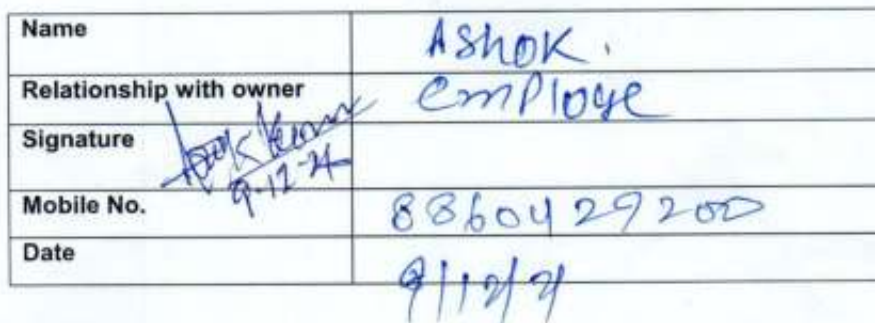 Name ASHOK.
Relationship with owner Employe
Signature
9-12-21
Mobile No. 8860429200
Date 9/12/21